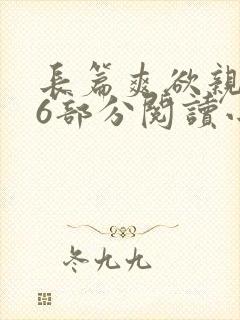 長篇爽欲親
6部分閱讀小
冬九九